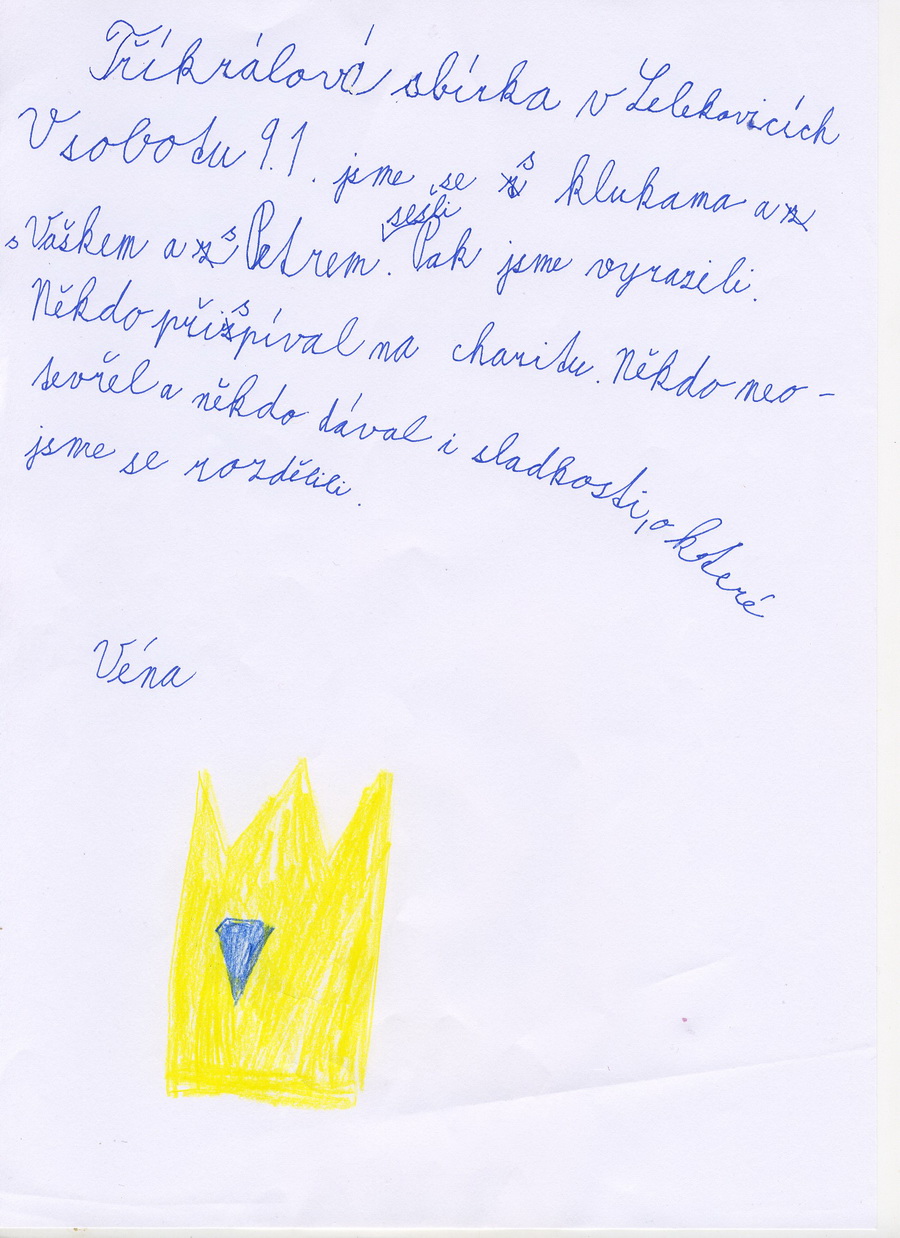 Tříkrálová sbírka v Lelekovicích
V sobotu 9.1. jsme se s klukama a
s Vaškem a s Petrem sešli. Pak jsme vyrazili.
Někdo přispíval na charitu. Někdo neo-
tevřel a někdo dával i sladkosti, o které
jsme se rozdělili.
Véna